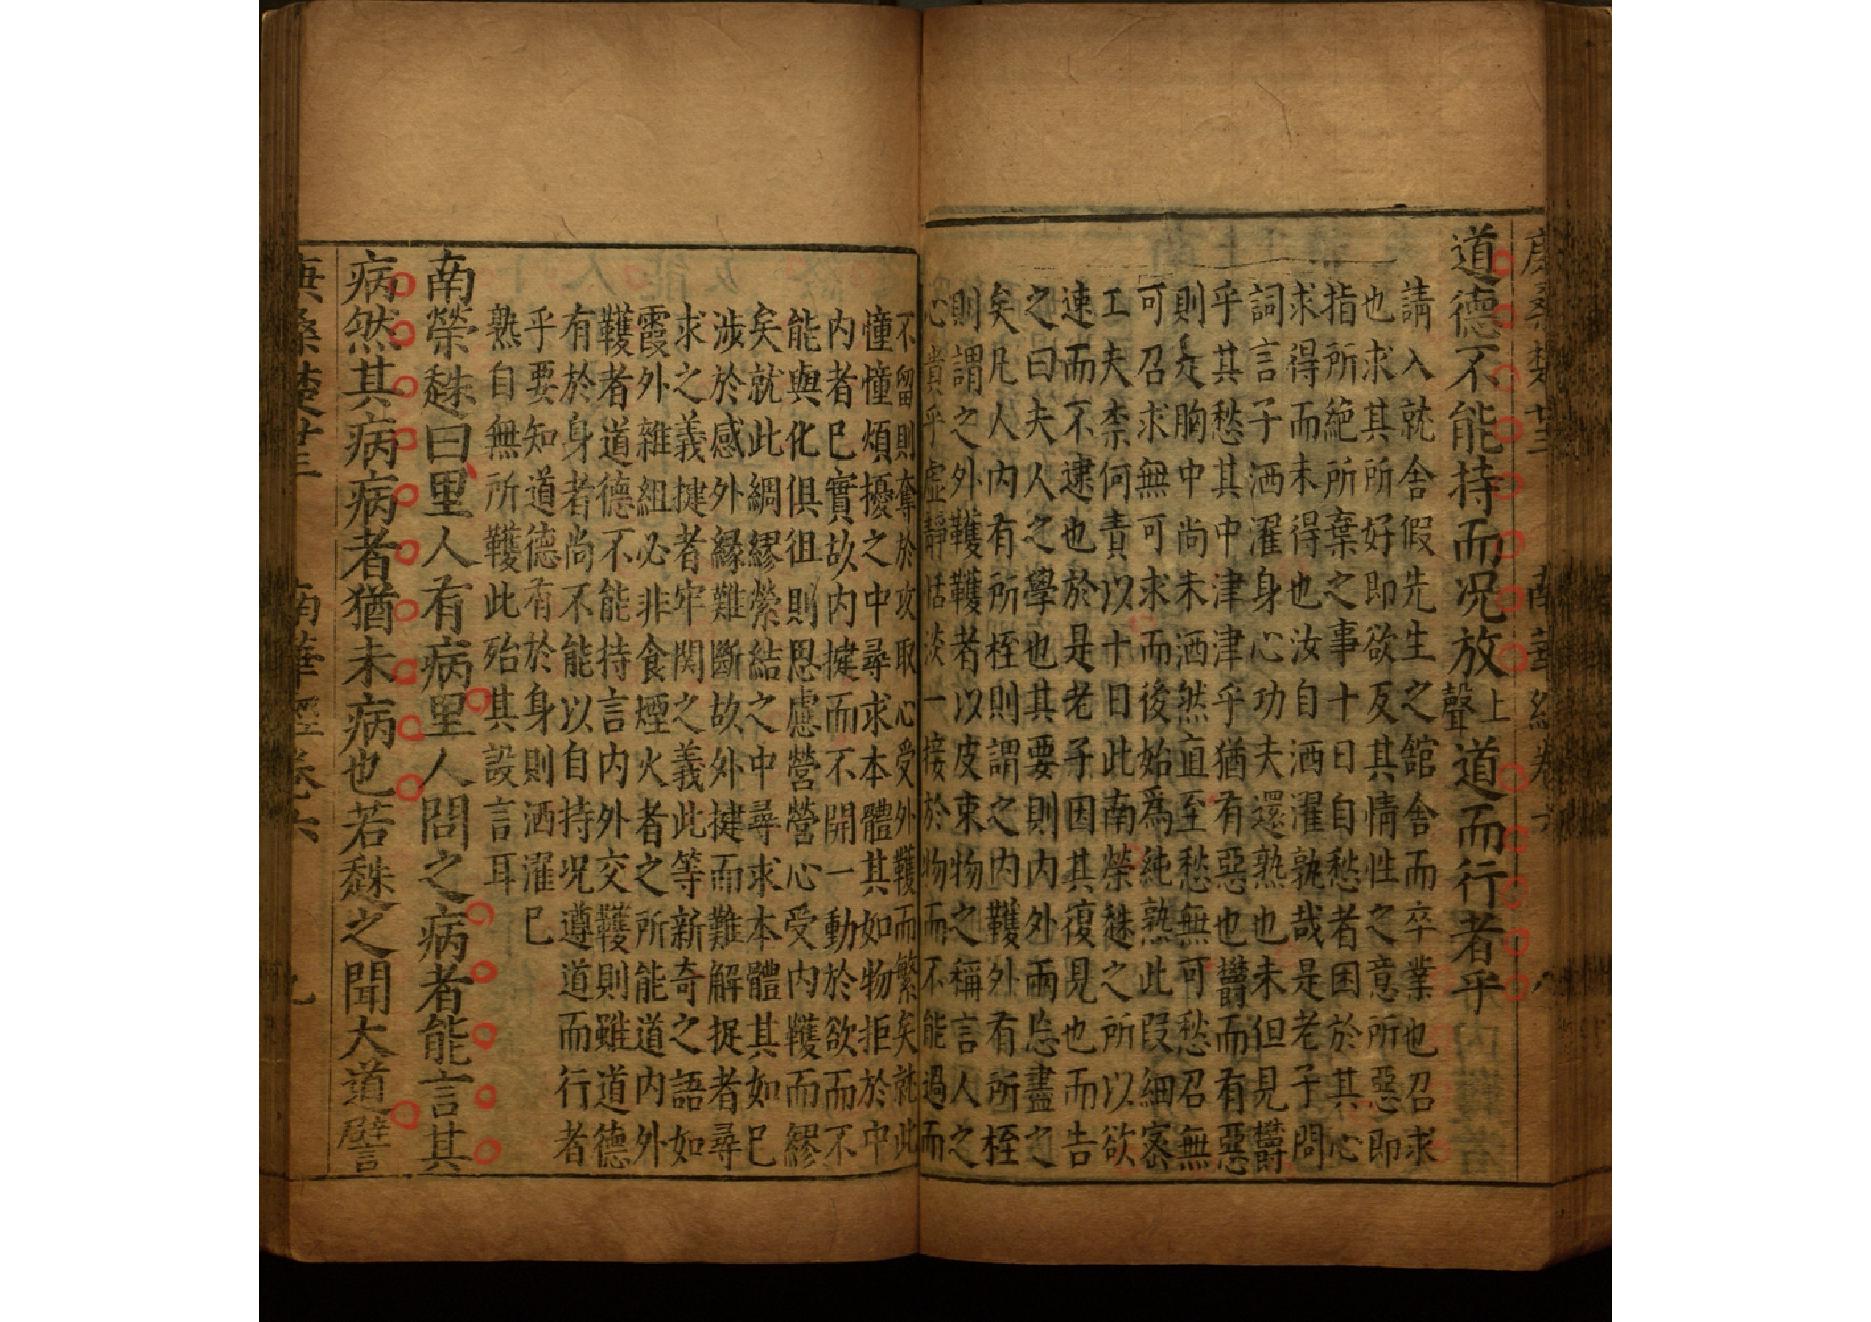 道德不能持而况放上聲道而行者乎
請入就舍假先生之舘舍而卒業也召求
也求其所好即欲反其情性之意所惡即
指所絶所棄之事十日自愁者困於其心
求得而未得也汝自洒濯孰哉是老子問
詞言子洒濯身心功夫還熟也未但見欝
乎其愁其中津津乎猶有惡也欝而有惡
則是胸中尚未洒然直至愁無可愁召無
可召求無可求而後始爲純熟此段細宻
工夫柰何責以十日此南榮趎之所以欲
速而不逮也於是老子因其復見也而告
之曰夫人之學也其要則内外兩忘盡之
矣凡人内有所桎則謂之内韄外有所桎
則謂之外韄韄者以皮束物之稱言人之
心貴乎虛靜恬淡一接於物而不能過而
不留則奪於攻取心受外韄而繁矣就此
憧憧煩擾之中尋求本體其如物拒於中
内者已實故内揵而不開一動於欲而不
能與化俱徂則思慮營營心受内韄而繆
矣就此綢繆縈結之中尋求本體其如已
涉於感外緣難斷故外揵而難解捉者尋
求之義揵者牢関之義此等新奇之語如
霞外雜組必非食煙火者之所能道内外
韄者道德不能持言内外交韄則雖道德
有於身者尚不能以自持况遵道而行者
乎要知道德有於身則洒濯巳
熟自無所韄此殆其設言耳
南榮趎曰里人有病里人問之病者能言其
病然其病病者猶未病也若趎之聞大道譬
庚桑楚廿三 南華經卷六 九